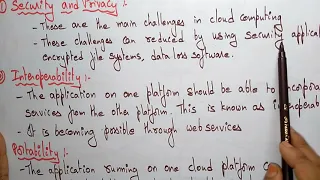 ① Security and Privacy :-
- These are the main challenges in cloud computing
- These challenges can reduced by using security applica
encrypted file systems, data loss software.
Interoperability :-
- The application on one platform should be able to incorpora
services from the other platform. This is known as interoperab
- It is becoming possible through web services
Portability :-
- The application running on one cloud platform c